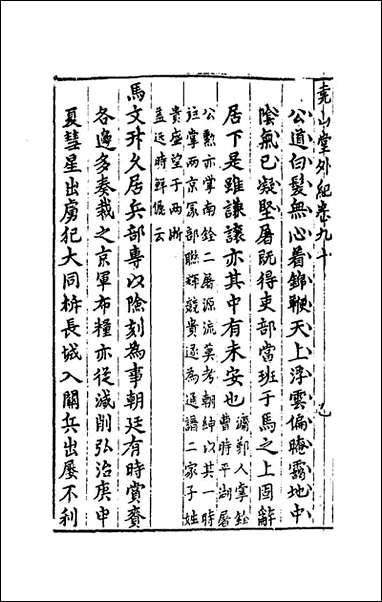 堯山堂外紀卷九十
公道白髮無心着錦鞭天上浮雲偏晻靄地中
陰氣已凝堅屠既得吏部當班于馬之上固辭
居下是雖謙讓亦其中有未安也
滽鄞人掌銓
曹時平湖屠
公勲亦掌南銓二屠源流莫考朝紳以其一時
往掌兩京冢部聯輝競貴遂為通譜二家子姓
貴盛望于兩浙
益近時鮮儷云
馬文升久居兵部專以陰刻為事朝廷有時賞賚
各邊多奏裁之京軍布糧亦從減削弘治庚申
夏彗星出虜犯大同拆長城入關兵出屢不利